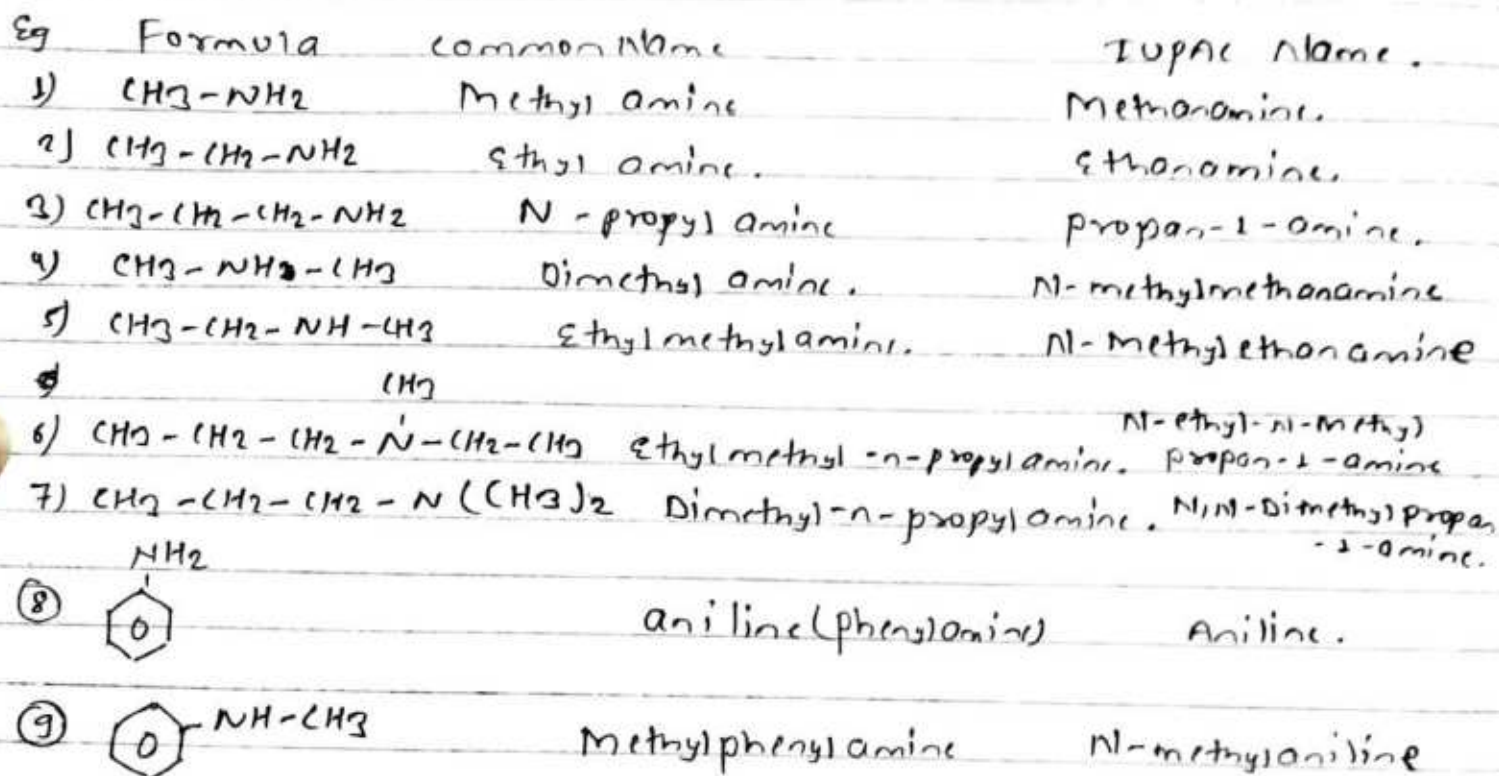 Eg Formula Common Name IUPAC Name.
1) CH3-NH2 Methyl amine Methanamine.
2) CH3-CH2-NH2 Ethyl amine. Ethanamine.
3) CH3-CH2-CH2-NH2 N-propyl amine propan-1-amine.
4) CH3-NH-CH3 Dimethyl amine. N-methylmethanamine
5) CH3-CH2-NH-CH3 Ethylmethylamine. N-Methylethanamine
CH3
N-ethyl-N-methyl
6) CH3-CH2-CH2-N-CH2-CH3 Ethylmethyl-n-propylamine. propan-1-amine
7) CH3-CH2-CH2-N((CH3)2 Dimethyl-n-propylamine. N,N-Dimethylpropan
-1-amine.
NH2
8 aniline(phenylamine) Aniline.
9 NH-CH3 Methylphenylamine N-methylaniline